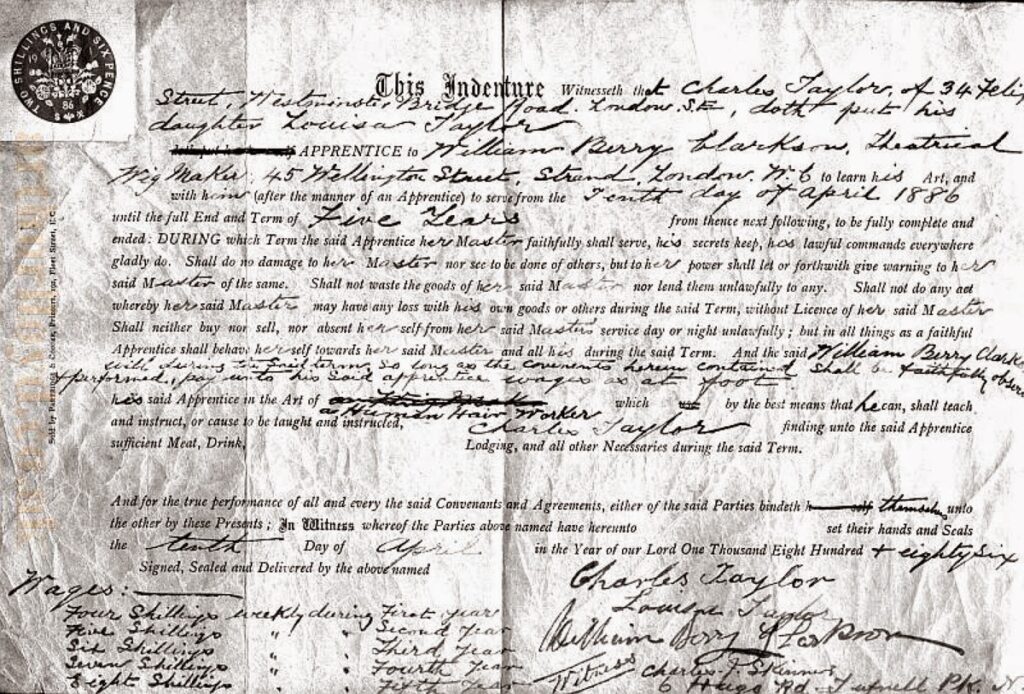 TWO SHILLINGS AND SIX PENCE
86
This Indenture Witnesseth that Charles Taylor, of 34 Felix
Street, Westminster Bridge Road. London. S.E, doth put his
daughter Louisa Taylor
APPRENTICE to William Berry Clarkson, Theatrical
Wig Maker. 45 Wellington Street, Strand, London. W.C to learn his Art, and
with him (after the manner of an Apprentice) to serve from the Tenth day of April 1886
until the full End and Term of Five Years from thence next following, to be fully complete and
ended: DURING which Term the said Apprentice her Master faithfully shall serve, his secrets keep, his lawful commands everywhere
gladly do. Shall do no damage to her Master nor see to be done of others, but to her power shall let or forthwith give warning to her
said Master of the same. Shall not waste the goods of her said Master nor lend them unlawfully to any. Shall not do any act
whereby her said Master may have any loss with his own goods or others during the said Term, without Licence of her said Master
Shall neither buy nor sell, nor absent herself from her said Masters service day or night unlawfully; but in all things as a faithful
Apprentice shall behave herself towards her said Master and all his during the said Term. And the said William Berry Clarks
will during the said term so long as the covenents herein contained shall be faithfully observ
& performed, pay unto his said apprentice wages as at foot
his said Apprentice in the Art of which use by the best means that he can, shall teach
a Human Hair Worker
and instruct, or cause to be taught and instructed, Charles Taylor finding unto the said Apprentice
sufficient Meat, Drink, Lodging, and all other Necessaries during the said Term.
And for the true performance of all and every the said Convenants and Agreements, either of the said Parties bindeth themselves unto
the other by these Presents; In Witness whereof the Parties above named have hereunto set their hands and Seals
the tenth Day of April in the Year of our Lord One Thousand Eight Hundred & eighty six
Signed, Sealed and Delivered by the above named
Wages:
Four Shillings weekly during First Year
Five Shillings " " Second Year
Six Shillings " " Third Year
Seven Shillings " " Fourth Year
Eight Shillings " " Fifth Year
Charles Taylor
Louisa Taylor
William Berry Clarkson
Witness Charles J. Skinner
6 Hugo Rd. Tufnell Pk. N